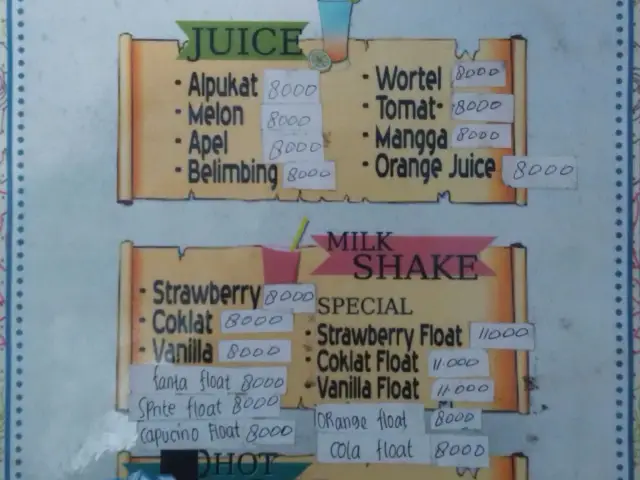 JUICE
• Alpukat 8000
• Melon 8000
• Apel 8000
• Belimbing 8000
• Wortel 8000
• Tomat 8000
• Mangga 8000
• Orange Juice 8000
MILK
SHAKE
• Strawberry 8000
• Coklat 8000
• Vanilla 8000
fanta float 8000
Sprite float 8000
capucino Float 8000
SPECIAL
• Strawberry Float 11000
• Coklat Float 11.000
• Vanilla Float 11.000
ORange float 8000
cola float 8000
HOT